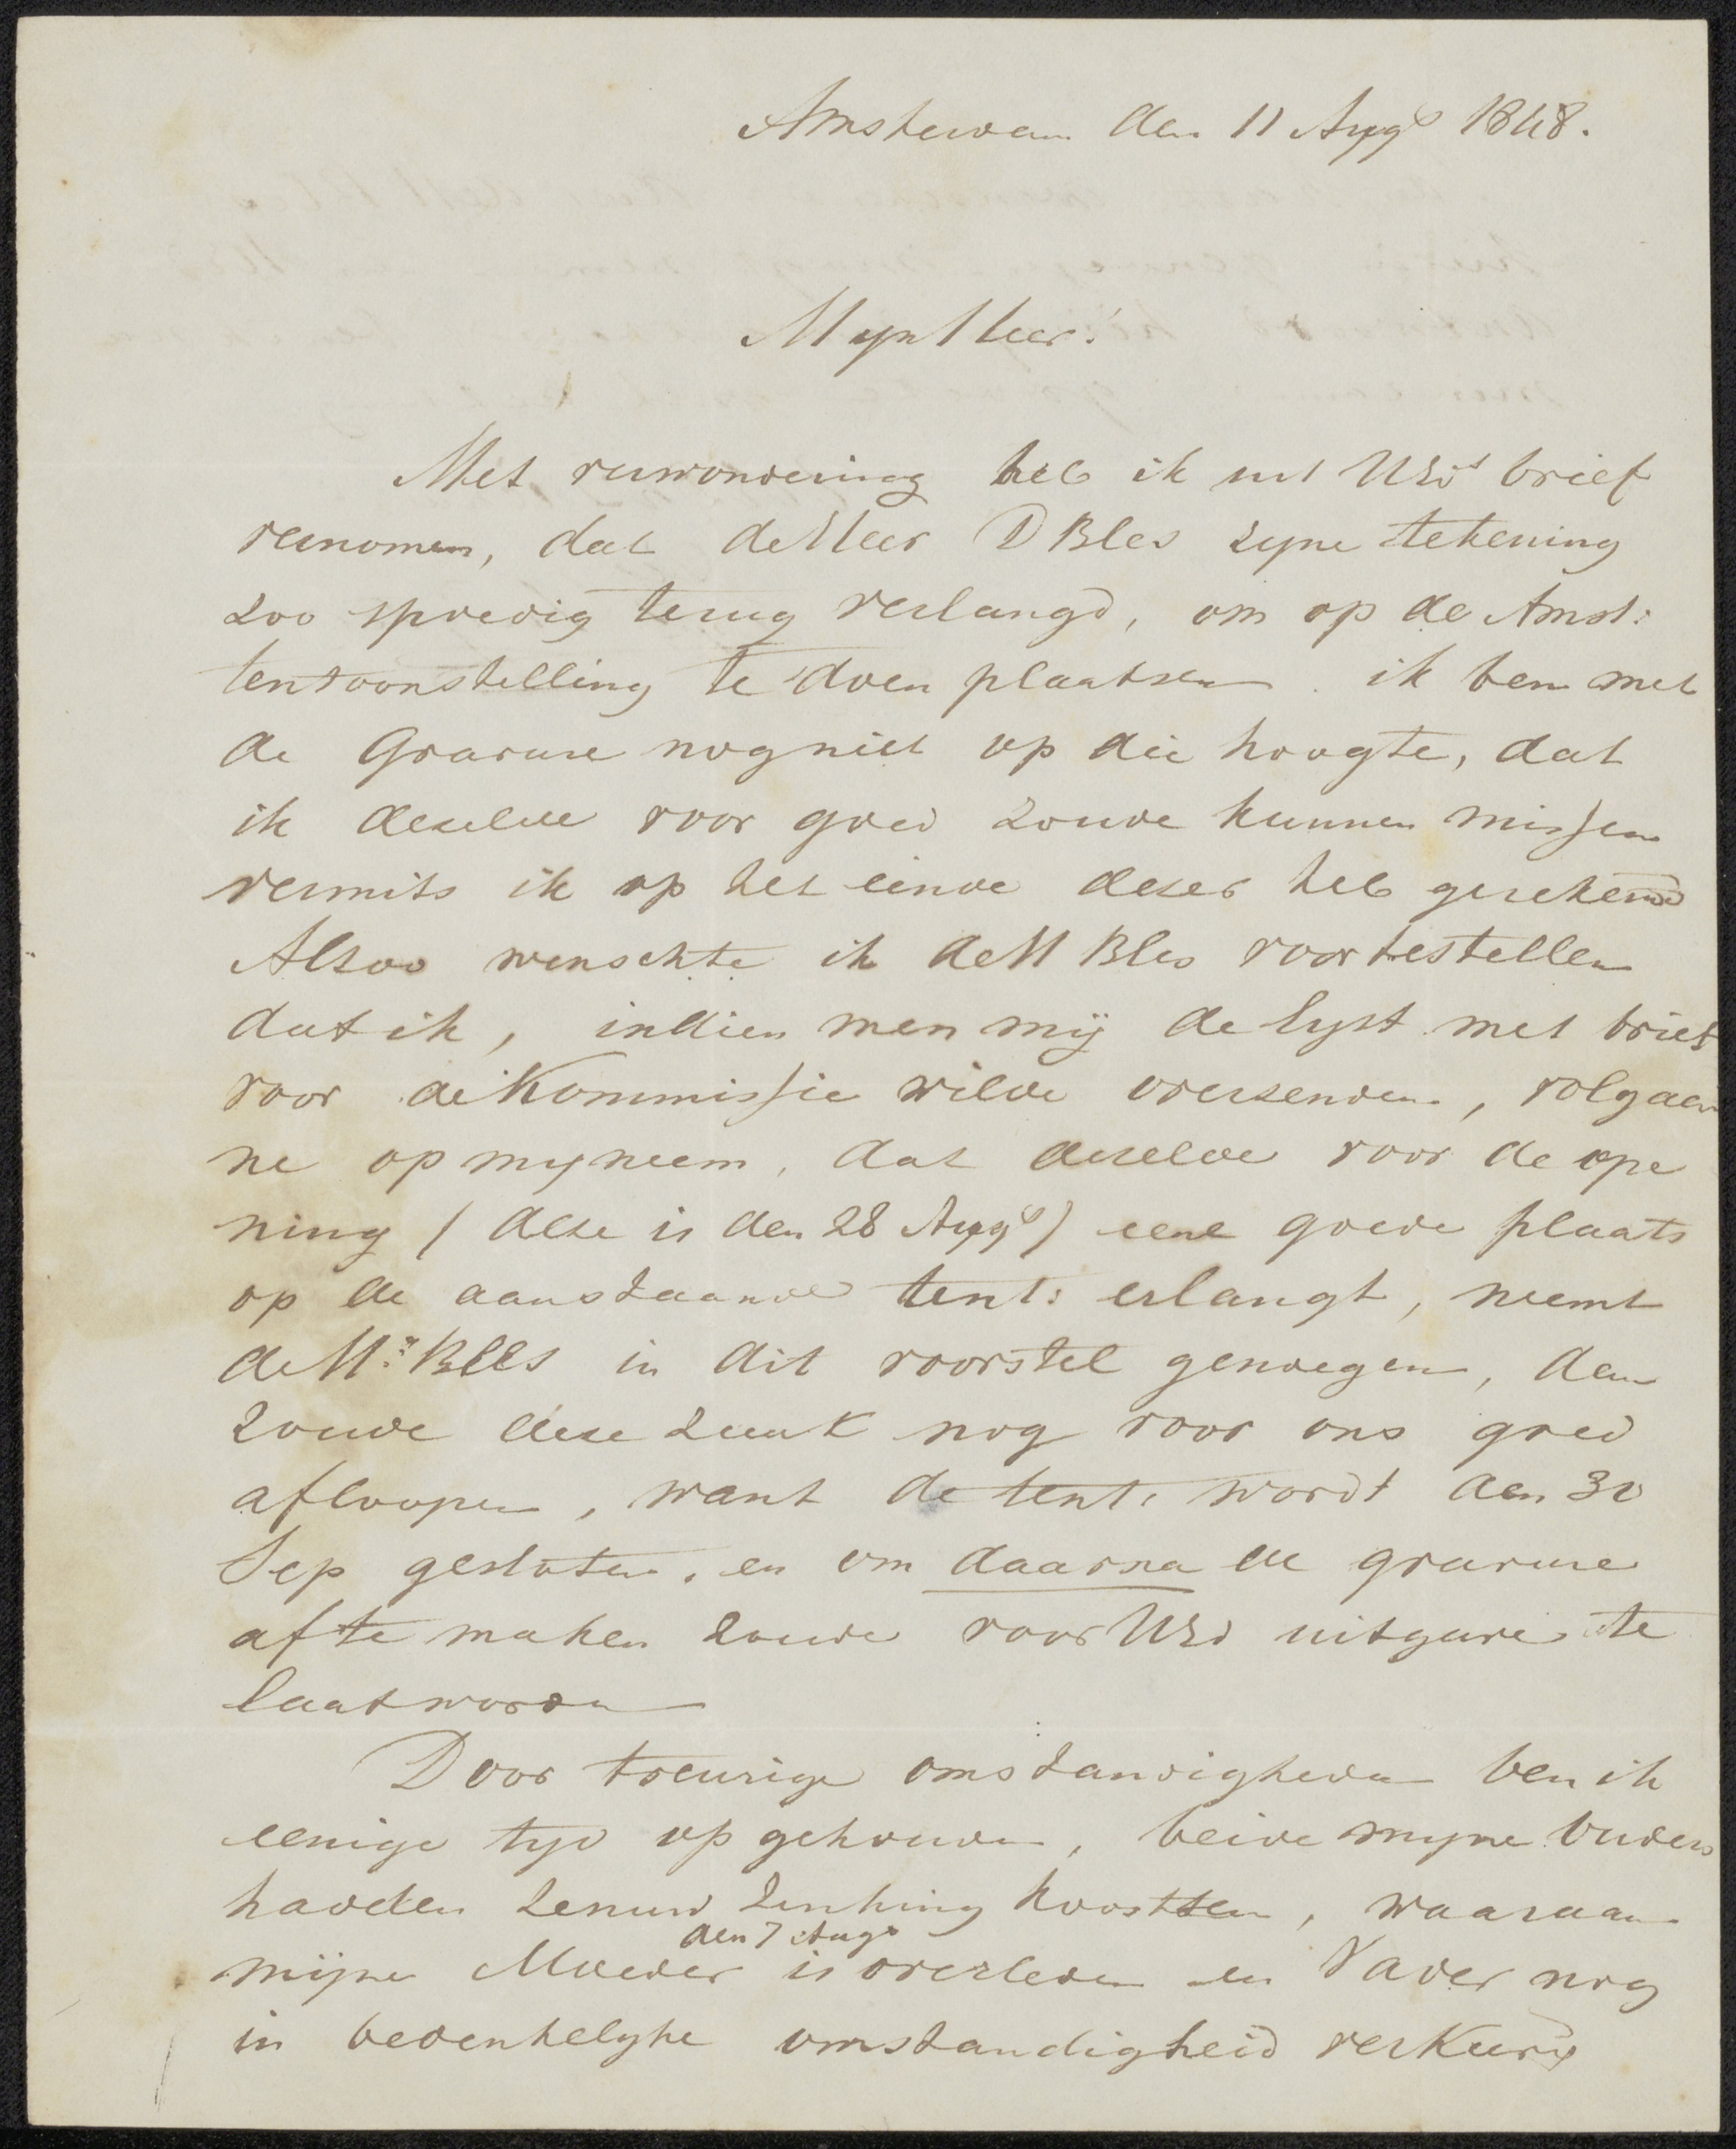 Amsterdam den 11 Augs 1848.
Myn Heer!
Met verwondering heb ik uit UEds brief
vernomen, dat de Heer D Bles zyne tekening
zoo spoedig terug verlangd, om op de Amst:
tentoonstelling te doen plaatsen. ik ben met
de Gravure nog niet op die hoogte, dat
ik dezelve voor goed zoude kunnen missen
vermits ik op het einde dezer heb gerekend
Alzoo wenschte ik de H Bles voor te stellen
dat ik, indien men mij de lyst met brief
voor de Kommissie wilde overzenden, volgaar
ne op my neem, dat dezelve voor de ope
ning (deze is den 28 Augs) eene goede plaats
op de aanstaande tent: erlangt, neemt
de Hr: Bles in dit voorstel genoegen, dan
zoude deze zaak nog voor ons goed
afloopen, want de tent: wordt den 30
Sep gesloten, en om daarna de gravure
af te maken zoude voor UEd uitgave te
laat worden
Door treurige omstandigheden ben ik
eenige tyd op gehouden, beide myne ouders
hadden zenuw zinking koortsen, waaraan
den 7 Augs
mijne Moeder is overleden en Vader nog
in bedenkelyke omstandigheid verkeerd